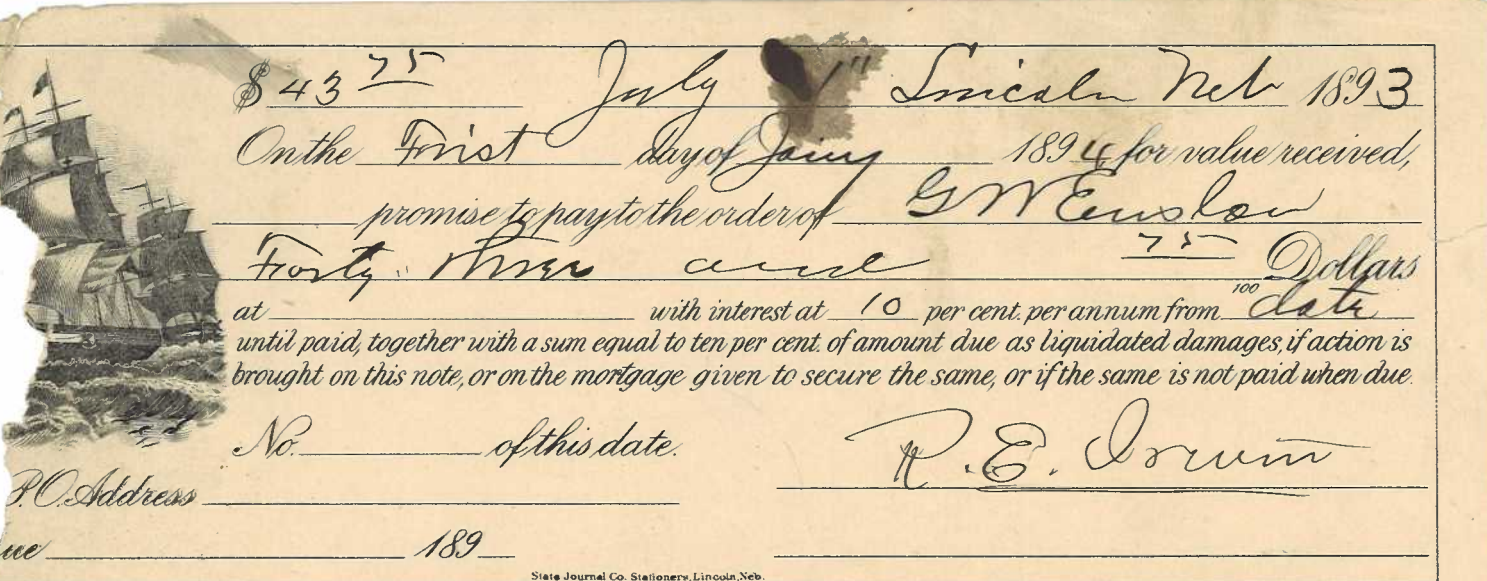 $ 43 75 July 1" Lincoln Neb 1893
On the First day of Jany 1894 for value received,
promise to pay to the order of G W Enslow
Forty three and 75 Dollars
at with interest at 10 per cent. per annum from 100 date
until paid, together with a sum equal to ten per cent. of amount due as liquidated damages, if action is
brought on this note, or on the mortgage given to secure the same, or if the same is not paid when due.
No. of this date.
R. E. Irwin
P.O. Address
ue 189
State Journal Co. Stationers, Lincoln, Neb.